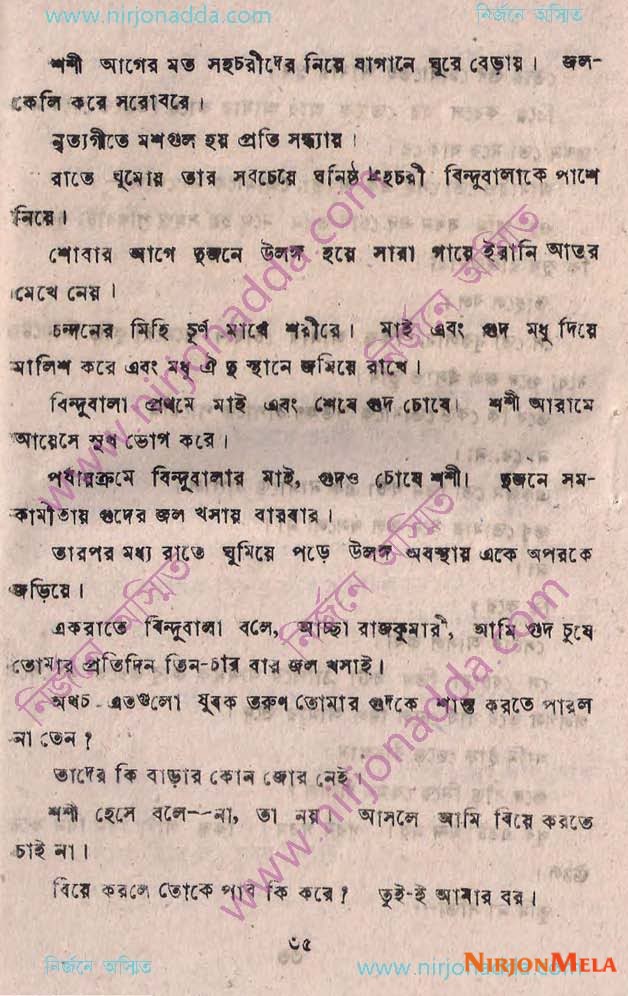 www.nirjonadda.com
নির্জনে অস্মিত
শশী আগের মত সহচরীদের নিয়ে বাগানে ঘুরে বেড়ায়। জল-
কেলি করে সরোবরে।
নৃত্যগীতে মশগুল হয় প্রতি সন্ধ্যায়।
রাতে ঘুমোয় তার সবচেয়ে ঘনিষ্ঠ সহচরী বিন্দুবালাকে পাশে
নিয়ে।
শোবার আগে দুজনে উলঙ্গ হয়ে সারা গায়ে ইরানি আতর
মেখে নেয়।
চন্দনের মিহি চূর্ণ মাখে শরীরে। মাই এবং গুদ মধু দিয়ে
মালিশ করে এবং মধু ঐ দু স্থানে জমিয়ে রাখে।
বিন্দুবালা প্রথমে মাই এবং শেষে গুদ চোষে। শশী আরামে
আয়েসে সুখ ভোগ করে।
পর্যায়ক্রমে বিন্দুবালার মাই, গুদও চোষে শশী। দুজনে সম-
কামীতায় গুদের জল খসায় বারবার।
তারপর মধ্য রাতে ঘুমিয়ে পড়ে উলঙ্গ অবস্থায় একে অপরকে
জড়িয়ে।
একরাতে বিন্দুবালা বলে, আচ্ছা রাজকুমারী, আমি গুদ চুষে
তোমার প্রতিদিন তিন-চার বার জল খসাই।
অথচ এতগুলো যুবক তরুণ তোমার গুদকে শান্ত করতে পারল
না কেন ?
তাদের কি বাড়ার কোন জোর নেই।
শশী হেসে বলে--না, তা নয়। আসলে আমি বিয়ে করতে
চাই না।
বিয়ে করলে তোকে পাব কি করে ? তুই-ই আমার বর।
৩৫
নির্জনে অস্মিত
www.nirjonadda.com
NIRJONMELA
www.nirjonadda.com
নির্জনে অস্মিত
নির্জনে অস্মিত
নির্জনে অস্মিত
www.nirjonadda.com